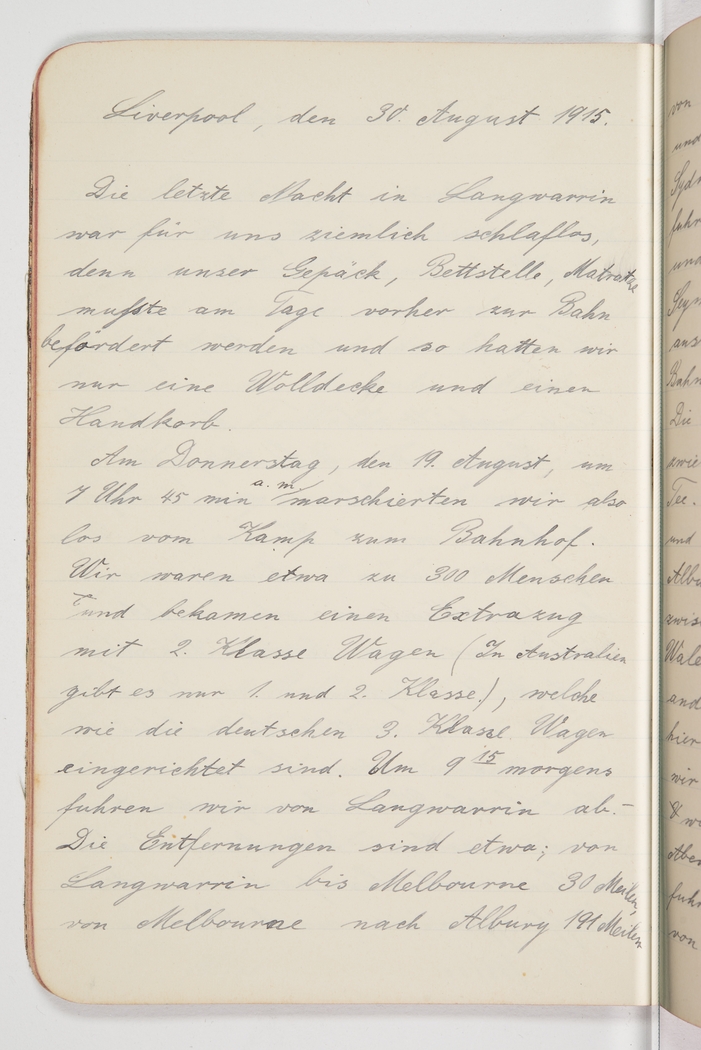 Liverpool, den 30. August 1915.
Die letzte Nacht in Langwarrin
war für uns ziemlich schlaflos,
denn unser Gepäck, Bettstelle, Matratze
mußte am Tage vorher zur Bahn
befördert werden und so hatten wir
nur eine Wolldecke und einen
Handkorb.
Am Donnerstag, den 19. August, um
7 Uhr 45 min a. m. marschierten wir also
los vom Kamp zum Bahnhof.
Wir waren etwa zu 300 Menschen
und bekamen einen Extrazug
mit 2. Klasse Wagen (In Australien
gibt es nur 1. und 2. Klasse!), welche
wie die deutschen 3. Klasse Wagen
eingerichtet sind. Um 9 15 morgens
fuhren wir von Langwarrin ab.-
Die Entfernungen sind etwa; von
Langwarrin bis Melbourne 30 Meilen,
von Melbourne nach Albury 191 Meilen
von
und
Sydn
fuhr
und
Seym
aus
Bahn
Die
zwie
Tee.
und
Albu
zwis
Wale
and
hier
wir
& wo
Aben
fuhr
von